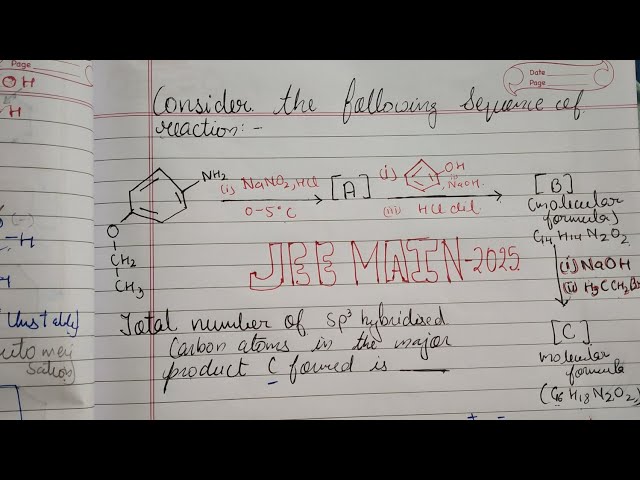 Page
OH
H
Date
Page
Consider the following sequence of
reaction:-
NH2
(i) NaNO2, HCl
0-5°C
[A]
(i) OH
(ii) NaOH
(iii) HCl dil.
[B]
(molecular
formula)
C14H14N2O2
(i) NaOH
(ii) H3CCH2Br
[C]
molecular
formula
(C16H18N2O2)
O
CH2
CH3
JEE MAIN-2025
Total number of sp3 hybridised
Carbon atoms in the major
product C formed is ____
(-)
-H
Unstable)